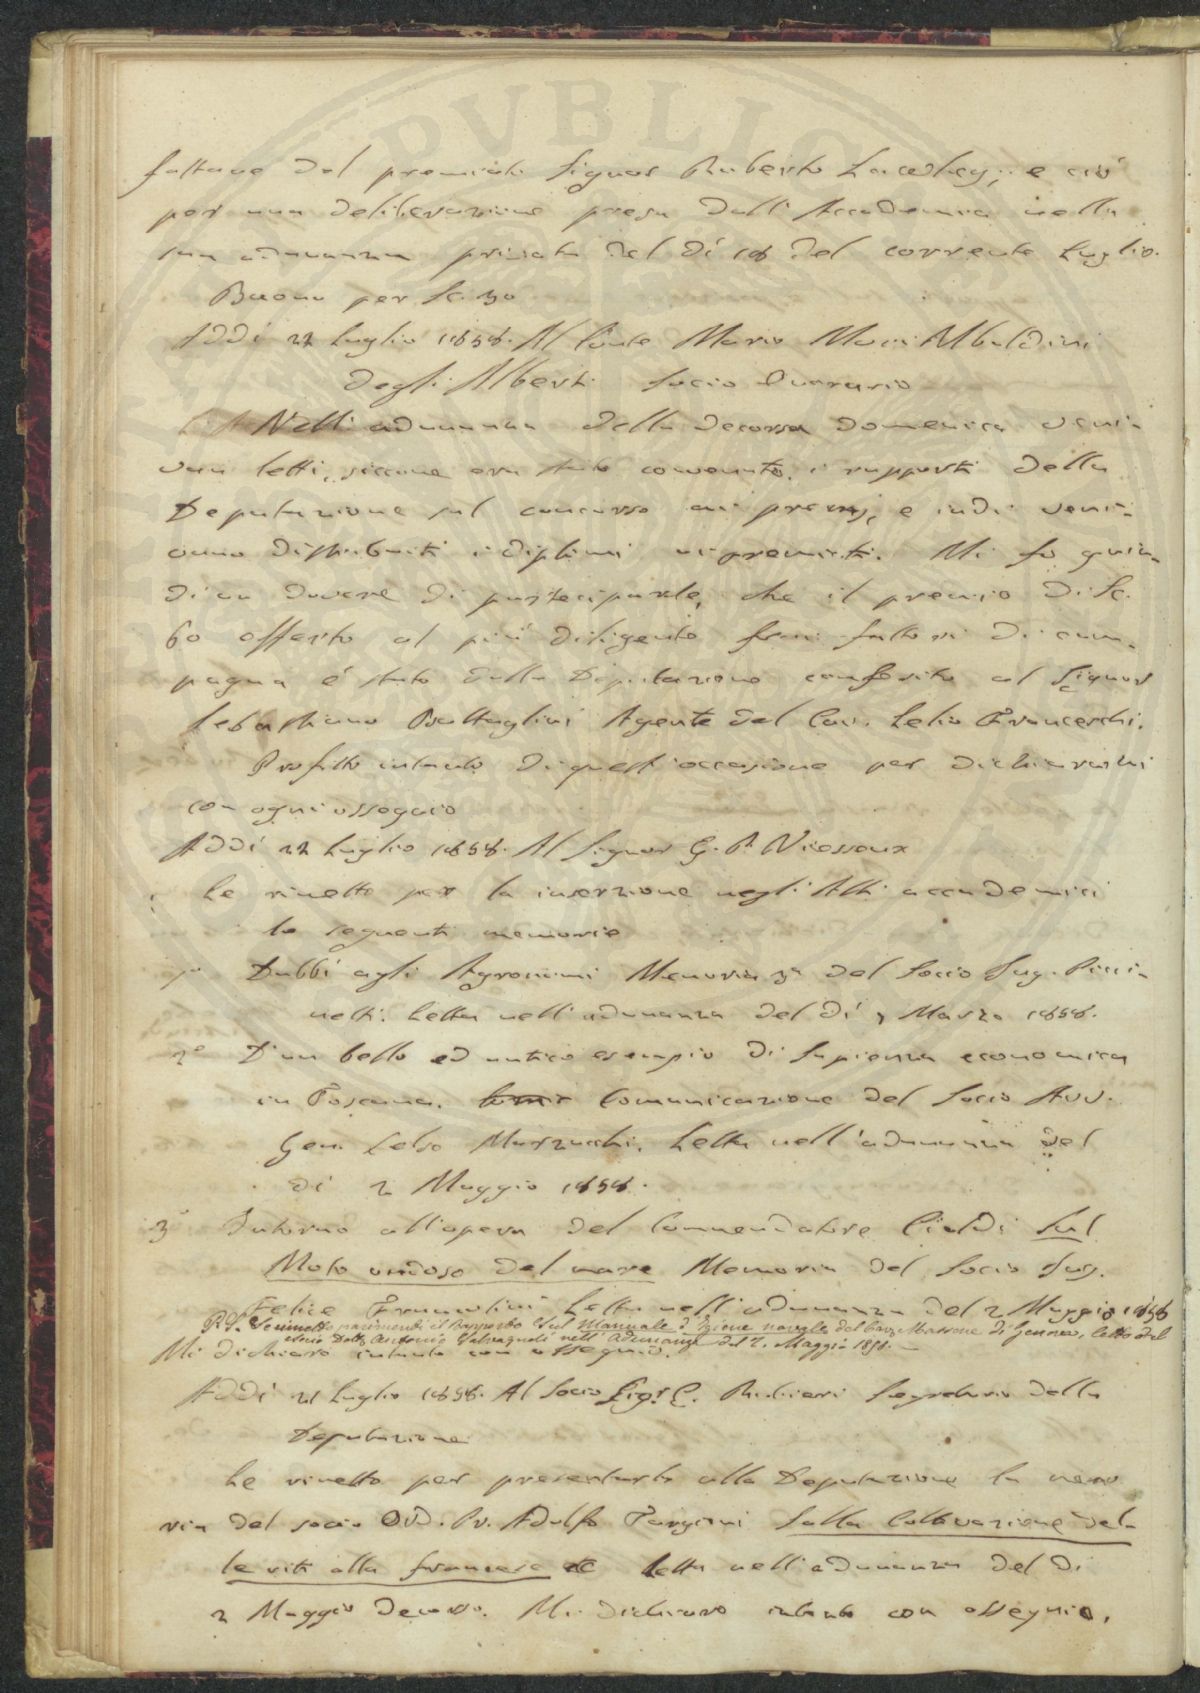 fattane dal premiato Signor Ruberto Lawley; e ciò
per una deliberazione presa dall'Accademia nella
sua adunanza privata del dì 18 del corrente Luglio.
Buono per Sc. 30
Addì 22 Luglio 1858. Al Conte Mario Mori Ubaldini
degli Alberti Socio Onorario
Nell'adunanza della decorsa domenica veni-
van letti, siccome era stato convenuto, i rapporti della
Deputazione sul concorso ai premj, e indi veni-
vano distribuiti i diplomi ai premiati. Mi fo quin-
di un dovere di parteciparle, che il premio di Sc.
60 offerto al più diligente frai fattori di cam-
pagna è stato dalla Deputazione conferito al Signor
Sebastiano Battaglini Agente del Cav. Lelio Franceschi.
Profitto intanto di quest'occasione per dichiararmi
con ogni ossequio
Addì 22 Luglio 1858. Al Signor G. P. Vieusseux
Le rimetto per la inserzione negli Atti accademici
le seguenti memorie
1° Dubbi agli Agronomi Memoria 3a del Socio Sig. Picci-
netti. Letta nell'adunanza del dì 7 Marzo 1858.
2° D'un bello ed antico esempio di Sapienza economica
in Toscana. Comunicazione del Socio Avv.
Gen. Celso Marzucchi. Letta nell'adunanza del
dì 2 Maggio 1858.
3° Intorno all'opera del Commendatore Cialdi Sul
Moto ondoso del mare Memoria del Socio Sig.
Felice Francolini Letta nell'adunanza del 2 Maggio 1858
P.S. Le rimetto parimenti il Rapporto Sul Manuale d'Igiene navale del Cav. Massone di Genova, letto dal
Socio Dott. Antonio Salvagnoli nell'Adunanza del 2. Maggio 1858.
Mi dichiaro intanto con ossequio.
Addì 22 Luglio 1858. Al Socio Sigr. C. Ridieri Segretario della
Deputazione
Le rimetto per presentarla alla Deputazione la memo
ria del socio Ord. Pr. Adolfo Targioni Sulla Coltivazione del-
le viti alla francese letta nell'adunanza del dì
2 Maggio decorso. Mi dichiaro intanto con ossequio.